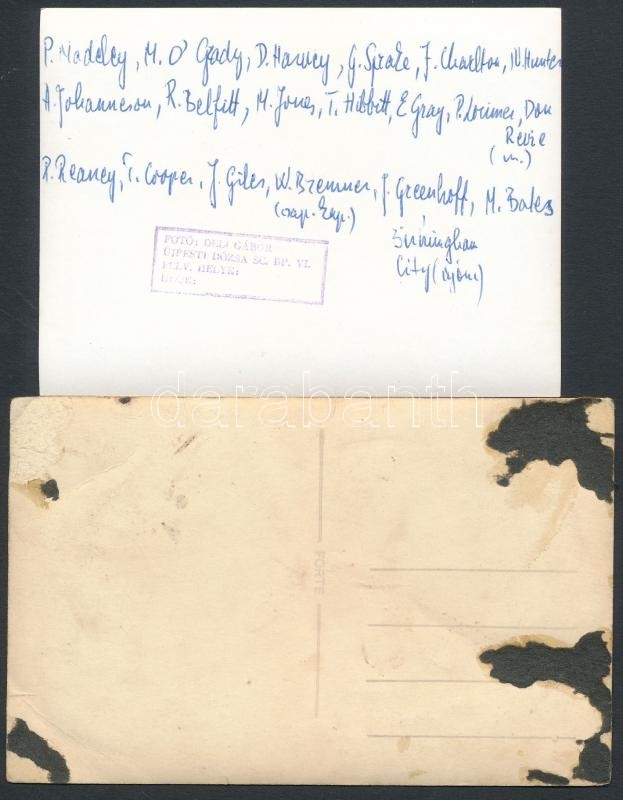 P. Madeley, M. O' Grady, D. Harvey, G. Sprake, J. Charlton, N. Hunter
A. Johanneson, R. Belfitt, M. Jones, T. Hibbitt, E Gray, P. Lorimer, Don
Revie
P. Reaney, T. Cooper, J. Giles, W. Bremner, J. Greenhoff, M. Bates
Birmingham
City
FOTÓ: DELI GÁBOR
ÚJPESTI DÓZSA SC. BP. VI.
FELV. HELYE:
IDEJE:
darabanth
FORTE